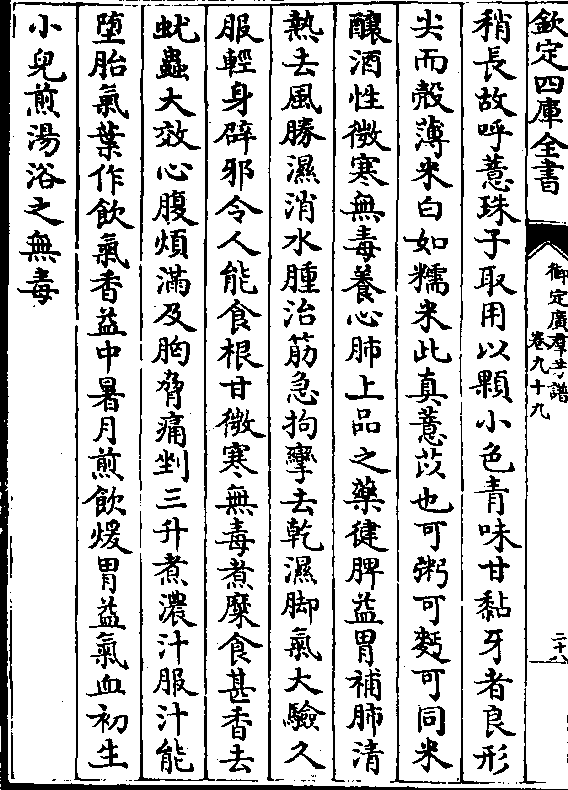 欽定四庫全書
御定廣羣芳譜
卷九十九
二十八
稍長故呼薏珠子取用以顆小色青味甘黏牙者良形
尖而殼薄米白如糯米此真薏苡也可粥可麪可同米
釀酒性微寒無毒養心肺上品之藥健脾益胃補肺清
熱去風勝濕消水腫治筋急拘攣去乾濕脚氣大驗久
服輕身辟邪令人能食根甘微寒無毒煮糜食甚香去
蚘蟲大效心腹煩滿及胸脅痛剉三升煮濃汁服汁能
墮胎氣葉作飲氣香益中暑月煎飲煖胃益氣血初生
小兒煎湯浴之無毒